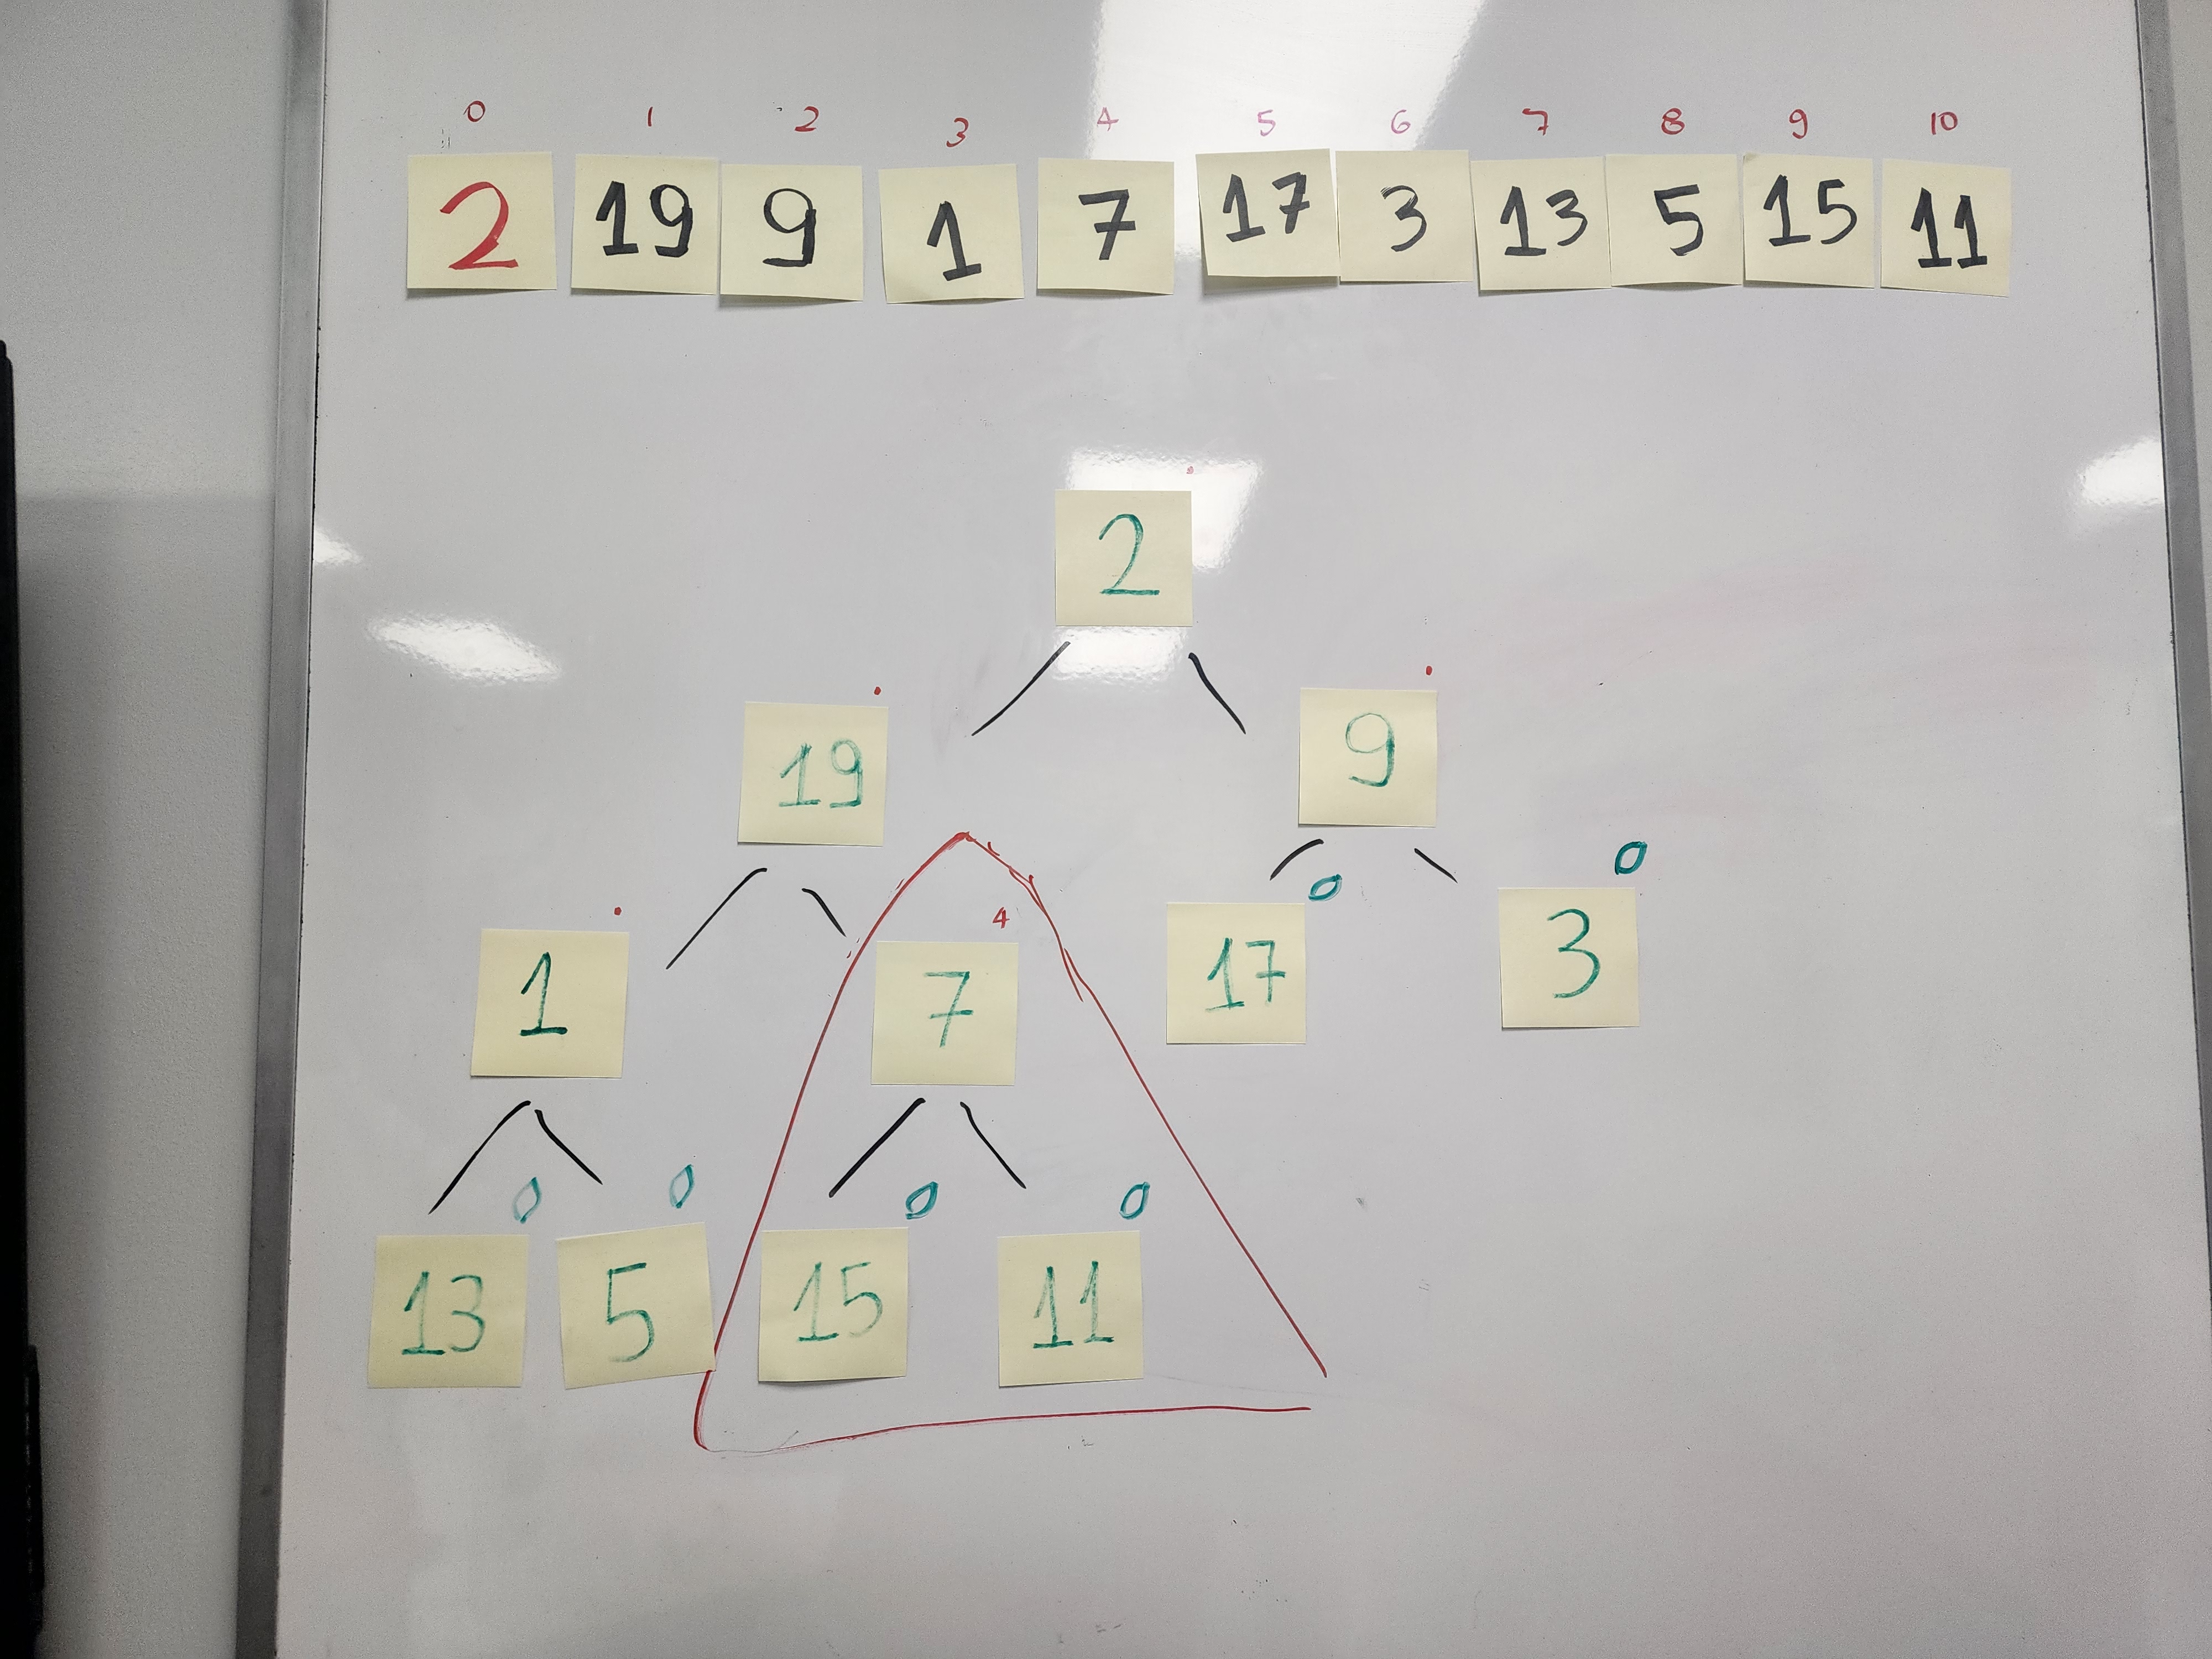 0 1 2 3 4 5 6 7 8 9 10
2 19 9 1 7 17 3 13 5 15 11
2
19 9
0 0
4
1 7 17 3
0 0 0 0
13 5 15 11